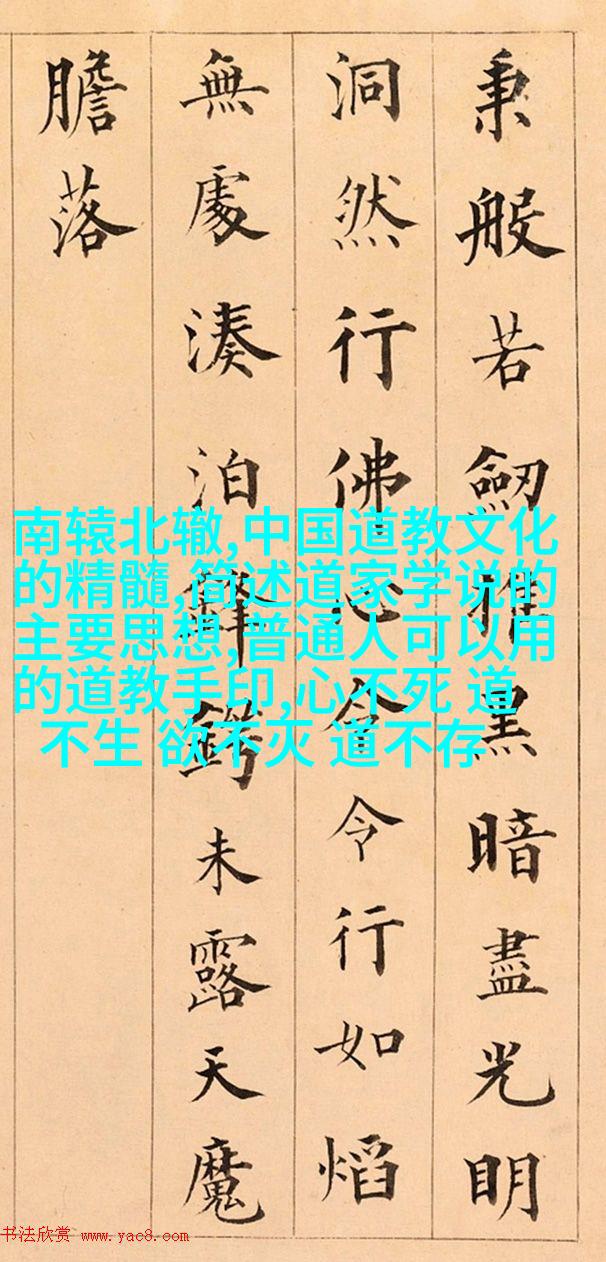 秉般若劒摧黑暗盡光明
洞然行佛心令行如熖
無處湊泊鋒鍔未露天魔
膽落
南辕北辙,中国道教文化
的精髓,简述道家学说的
主要思想,普通人可以用
的道教手印,心不死 道
不生 欲不灭 道不存
书法欣赏 www.yac8.com